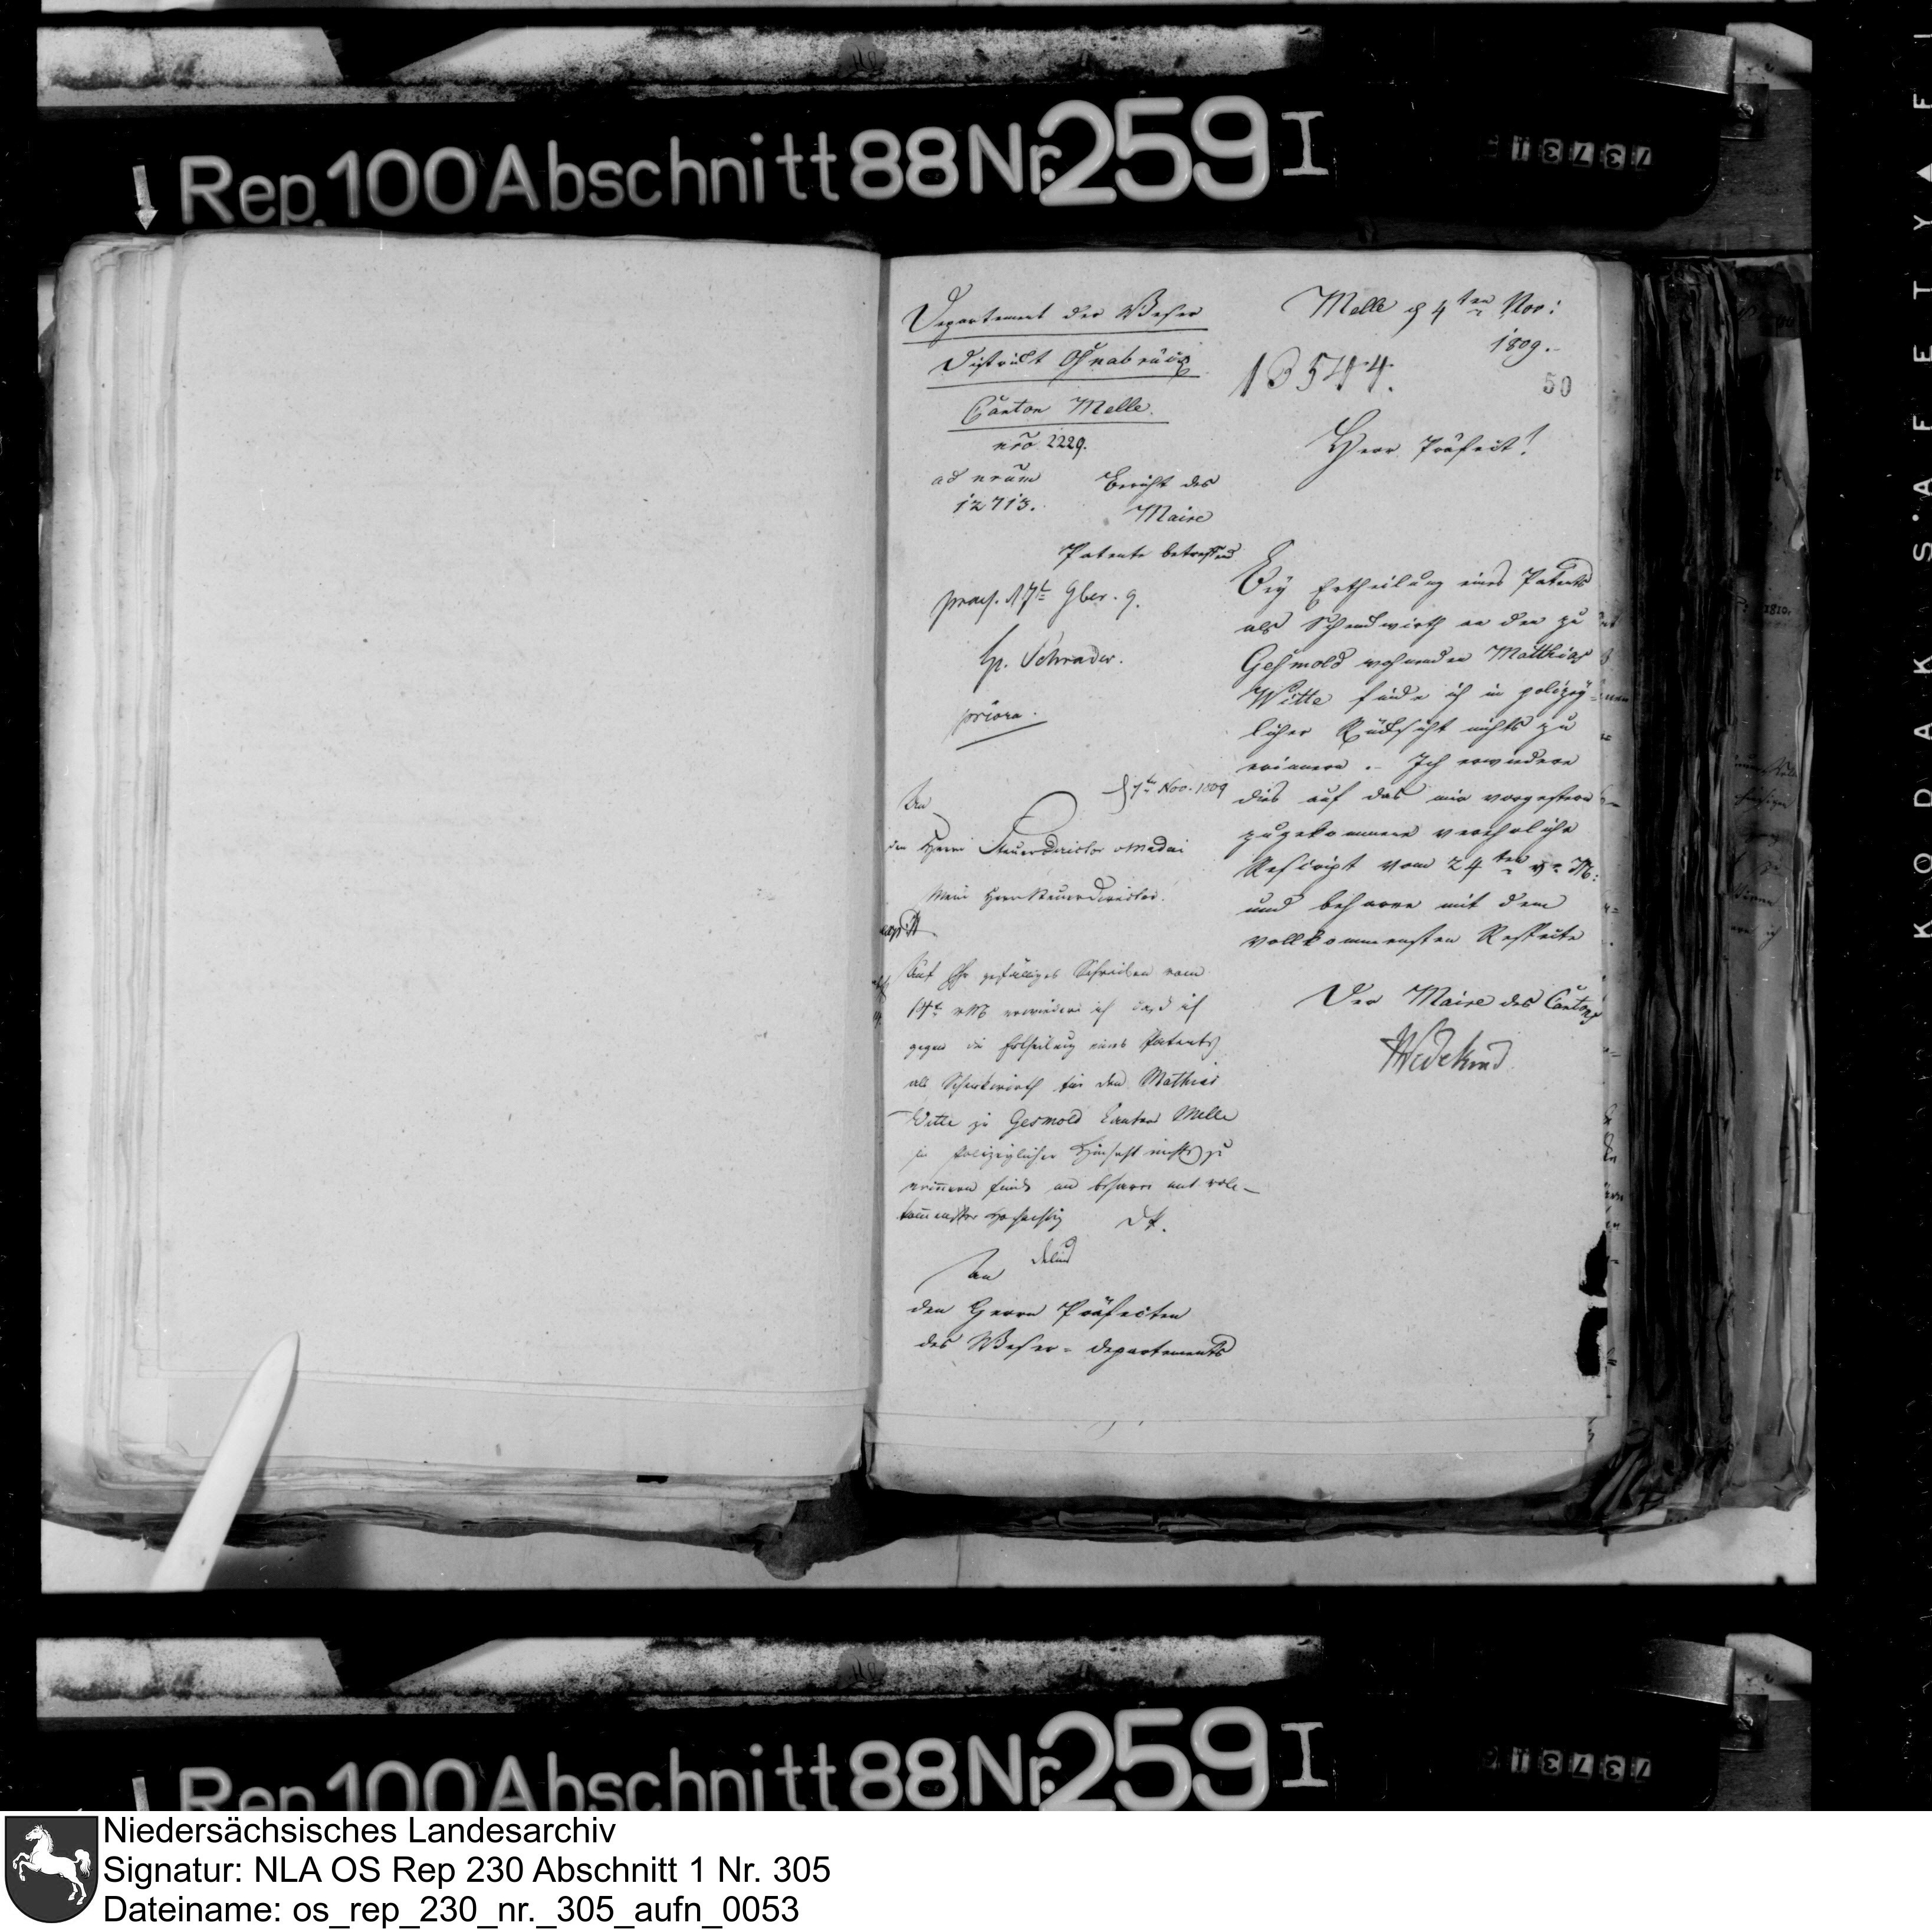 Rep. 100 Abschnitt 88 Nr. 259 I
Departement der Weser
District Osnabrück
Canton Melle.
nro 2229.
ad nrum
12713.
Bericht des
Maire
Patente betreffend
praes. 17t 9ber. 9.
H. Schrader.
priora.
7t Nov. 1809
An
den Herrn Steuerdirector
Mein Herr Steuerdirector.
Auf Ihr gefälliges Schreiben vom
14t erwiedere ich daß ich
gegen die Ertheilung eines Patents
als Schenkwirth für den Mathias
Witte zu Gesmold Canton Melle
in polizeylicher Hinsicht nichts zu
erinnern finde und beharre mit voll-
kommenster Hochachtung
An
den Herrn Präfecten
des Weser-departements
Melle d 4ten Nov:
1809.
13544.
50
Herr Präfect!
Bey Ertheilung eines Patents
als Schenkwirth an den zu
Gesmold wohnenden Matthias
Witte finde ich in polizey-
licher Rücksicht nichts zu
erinnern. Ich erwiedere
dies auf das mir vorgestern
zugekommene verehrliche
Rescript vom 24ten v. M:
und beharre mit dem
vollkommensten Respecte
Der Maire des Cantons
Wedekind
1810.
Rep. 100 Abschnitt 88 Nr. 259 I
KODAK SAFETY
Niedersächsisches Landesarchiv
Signatur: NLA OS Rep 230 Abschnitt 1 Nr. 305
Dateiname: os_rep_230_nr._305_aufn_0053